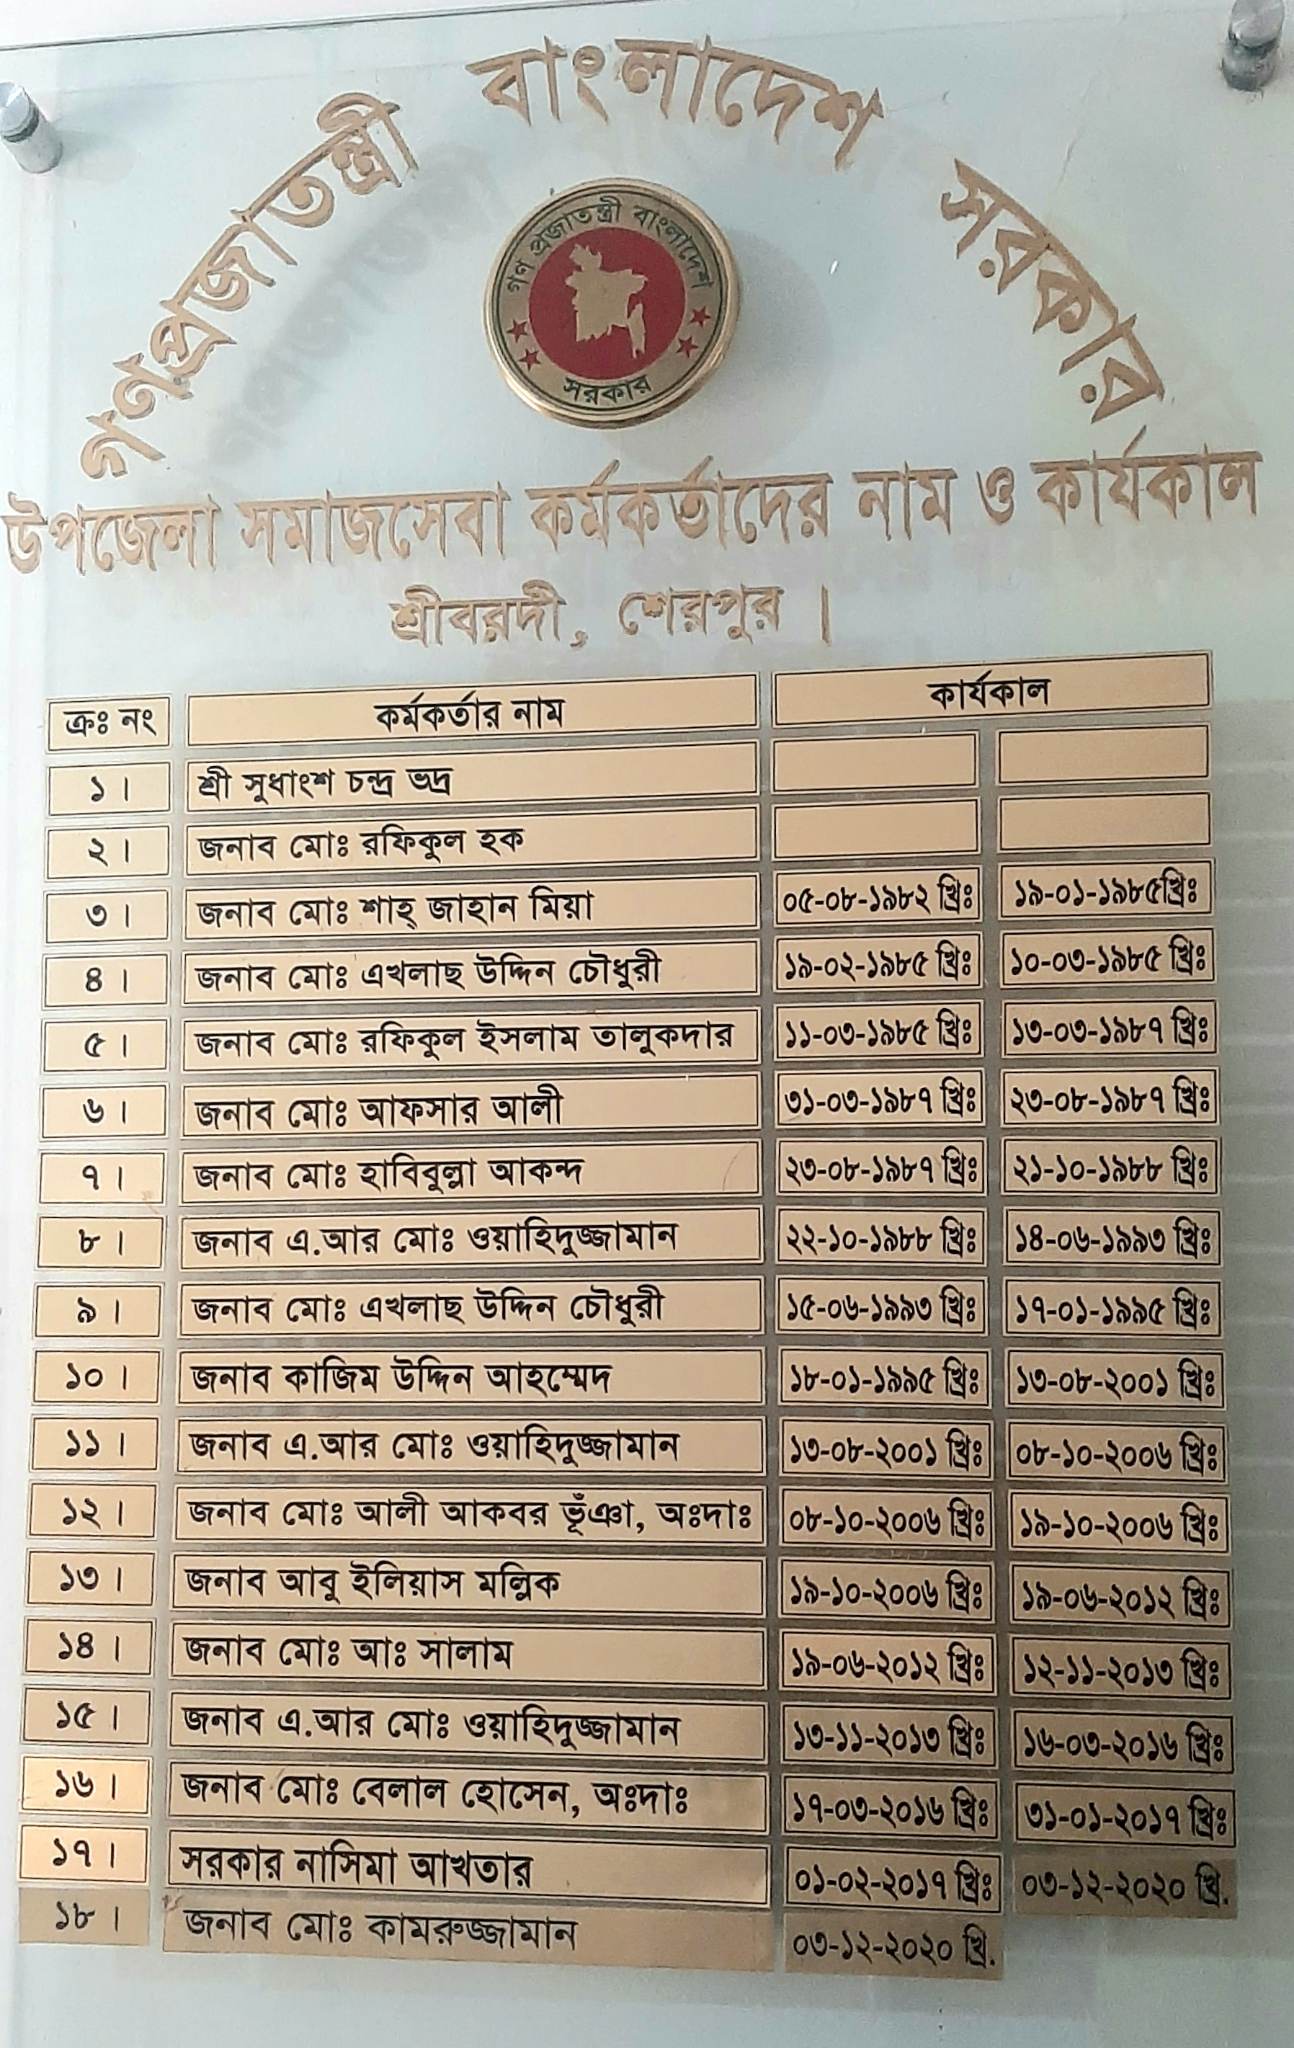 গণপ্রজাতন্ত্রী বাংলাদেশ সরকার
গণ প্রজাতন্ত্রী বাংলাদেশ
সরকার
উপজেলা সমাজসেবা কর্মকর্তাদের নাম ও কার্যকাল
শ্রীবরদী, শেরপুর ।
ক্রঃ নং কর্মকর্তার নাম কার্যকাল
১। শ্রী সুধাংশ চন্দ্র ভদ্র
২। জনাব মোঃ রফিকুল হক
৩। জনাব মোঃ শাহ্ জাহান মিয়া ০৫-০৮-১৯৮২ খ্রিঃ ১৯-০১-১৯৮৫খ্রিঃ
৪। জনাব মোঃ এখলাছ উদ্দিন চৌধুরী ১৯-০২-১৯৮৫ খ্রিঃ ১০-০৩-১৯৮৫ খ্রিঃ
৫। জনাব মোঃ রফিকুল ইসলাম তালুকদার ১১-০৩-১৯৮৫ খ্রিঃ ১৩-০৩-১৯৮৭ খ্রিঃ
৬। জনাব মোঃ আফসার আলী ৩১-০৩-১৯৮৭ খ্রিঃ ২৩-০৮-১৯৮৭ খ্রিঃ
৭। জনাব মোঃ হাবিবুল্লা আকন্দ ২৩-০৮-১৯৮৭ খ্রিঃ ২১-১০-১৯৮৮ খ্রিঃ
৮। জনাব এ.আর মোঃ ওয়াহিদুজ্জামান ২২-১০-১৯৮৮ খ্রিঃ ১৪-০৬-১৯৯৩ খ্রিঃ
৯। জনাব মোঃ এখলাছ উদ্দিন চৌধুরী ১৫-০৬-১৯৯৩ খ্রিঃ ১৭-০১-১৯৯৫ খ্রিঃ
১০। জনাব কাজিম উদ্দিন আহম্মেদ ১৮-০১-১৯৯৫ খ্রিঃ ১৩-০৮-২০০১ খ্রিঃ
১১। জনাব এ.আর মোঃ ওয়াহিদুজ্জামান ১৩-০৮-২০০১ খ্রিঃ ০৮-১০-২০০৬ খ্রিঃ
১২। জনাব মোঃ আলী আকবর ভূঁঞা, অঃদাঃ ০৮-১০-২০০৬ খ্রিঃ ১৯-১০-২০০৬ খ্রিঃ
১৩। জনাব আবু ইলিয়াস মল্লিক ১৯-১০-২০০৬ খ্রিঃ ১৯-০৬-২০১২ খ্রিঃ
১৪। জনাব মোঃ আঃ সালাম ১৯-০৬-২০১২ খ্রিঃ ১২-১১-২০১৩ খ্রিঃ
১৫। জনাব এ.আর মোঃ ওয়াহিদুজ্জামান ১৩-১১-২০১৩ খ্রিঃ ১৬-০৩-২০১৬ খ্রিঃ
১৬। জনাব মোঃ বেলাল হোসেন, অঃদাঃ ১৭-০৩-২০১৬ খ্রিঃ ৩১-০১-২০১৭ খ্রিঃ
১৭। সরকার নাসিমা আখতার ০১-০২-২০১৭ খ্রিঃ ০৩-১২-২০২০ খ্রি.
১৮। জনাব মোঃ কামরুজ্জামান ০৩-১২-২০২০ খ্রি.